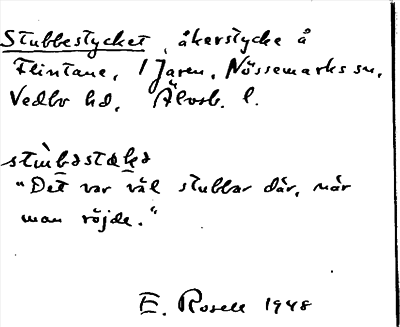 Stubbestycket, åkerstycke å
Flintane, 1 Jaren, Nössemarks sn,
Vedbo hd, Älvsb. l.
stùbəstəkə
"Det var väl stubbar där, när
man röjde."
E. Rosell 1948